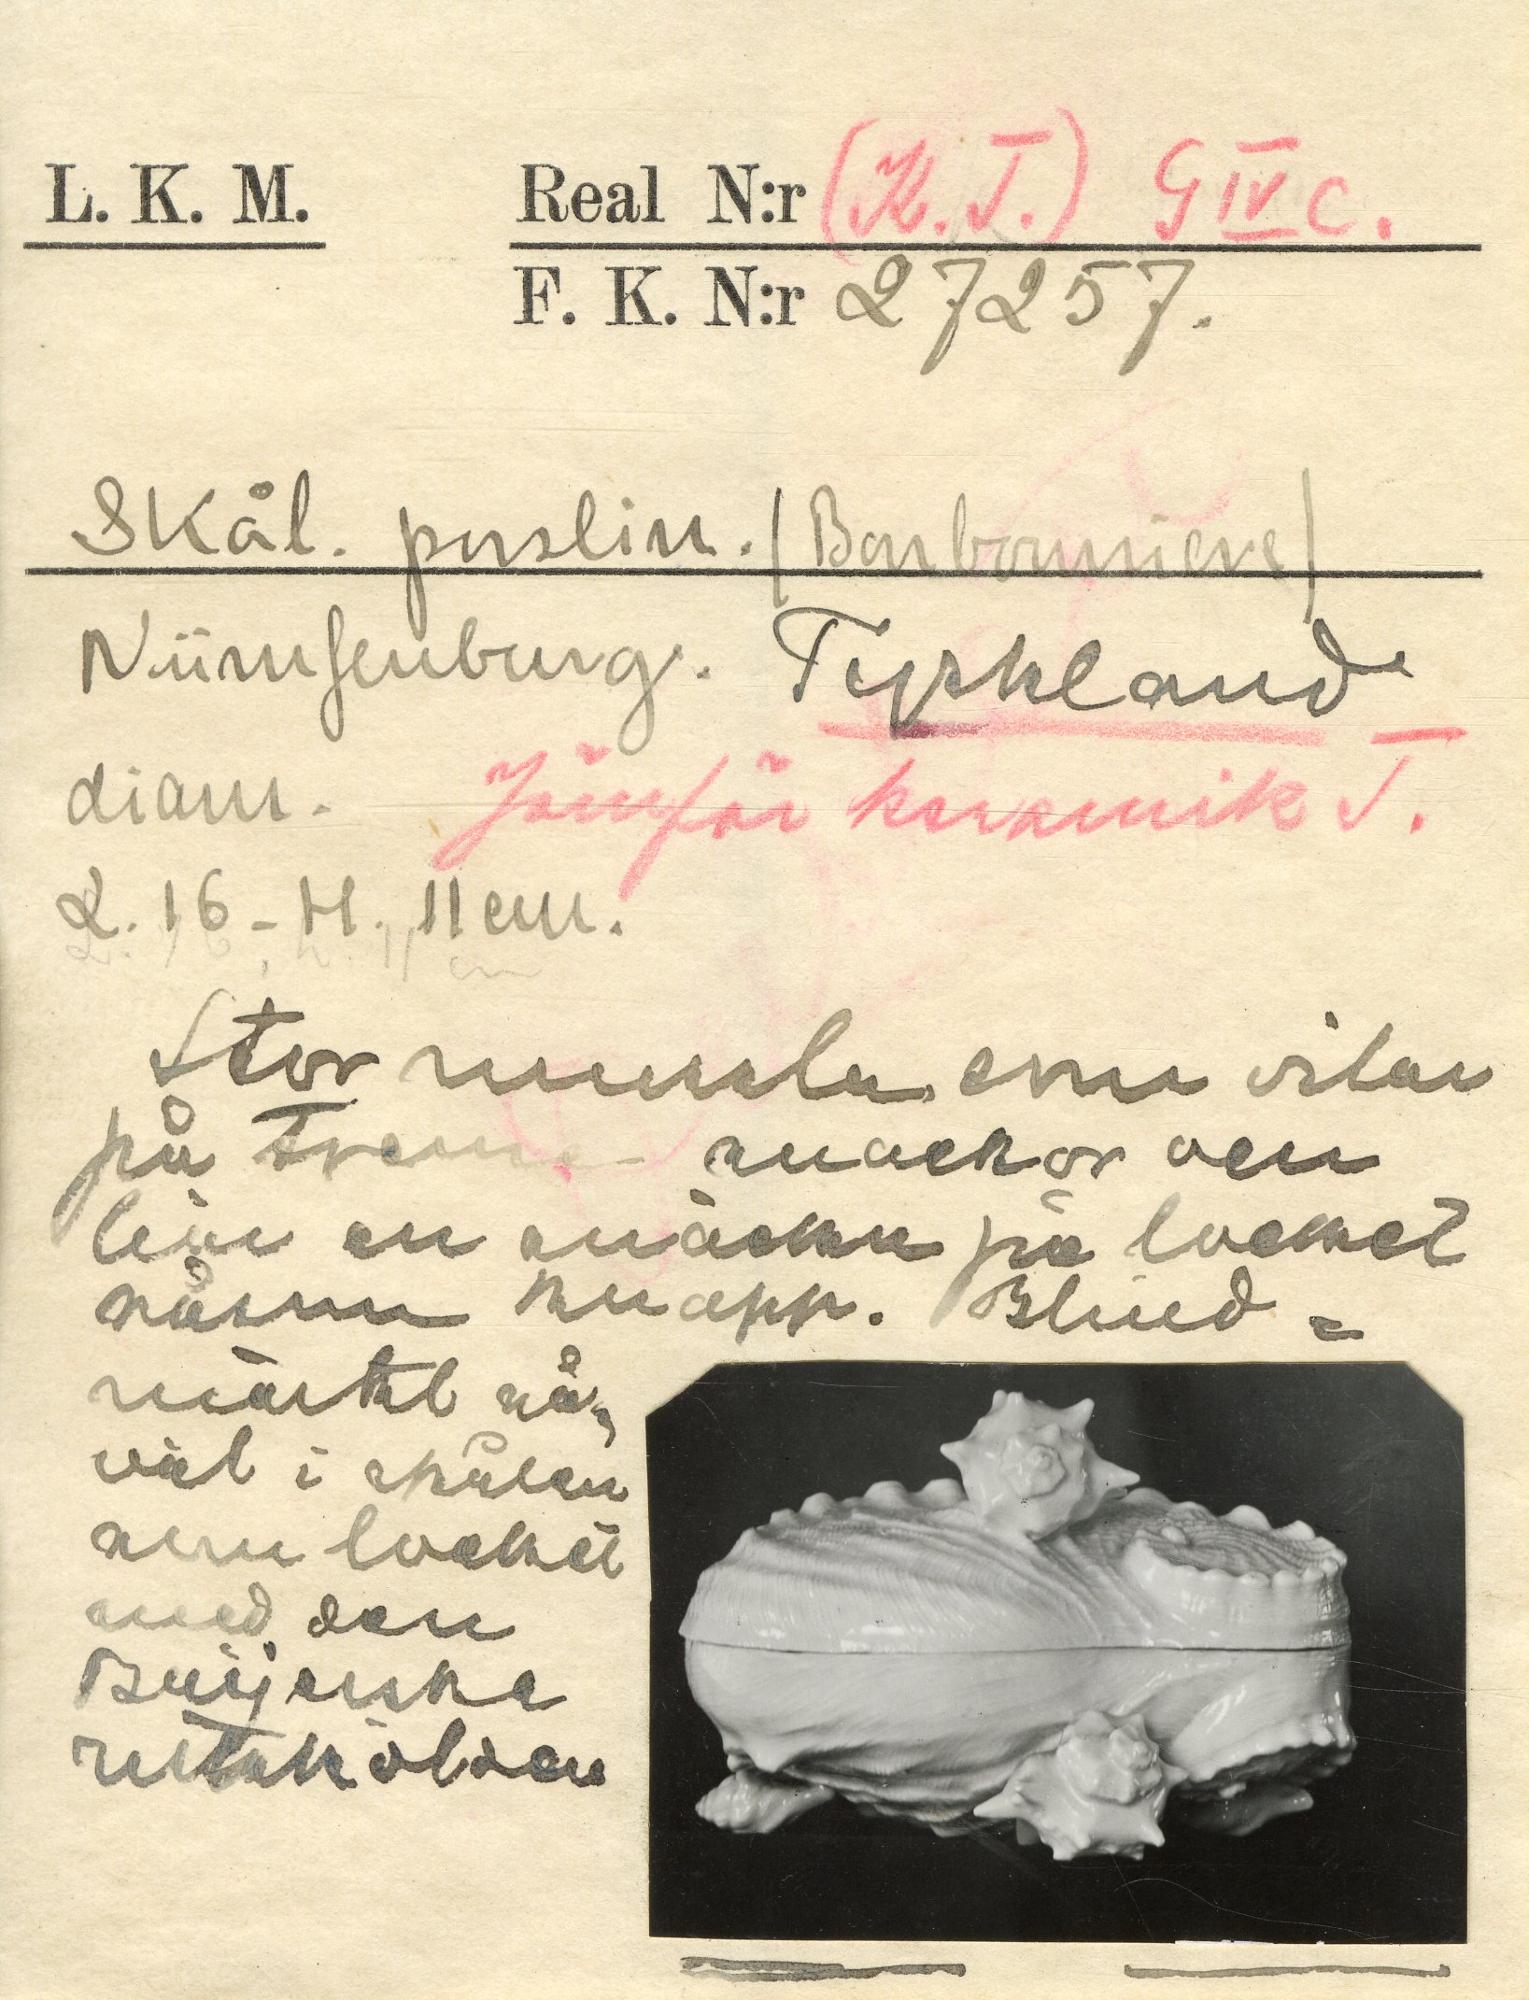 L. K. M. Real N:r (K.T.) G IV c.
F. K. N:r 27257.
Skål. porslin. (Bonbonniere)
Nümfenburg. Tyskland
diam. Jämför keramik T.
L. 16 - H. 11 cm.
L. 16, h. 11 cm
Stor mussla som vilar
på trenne snäckor även
en snäcka på locket
såsom knapp. Blind=
märkt så
väl i skålen
som locket
med den
Baijerska
rutskölden